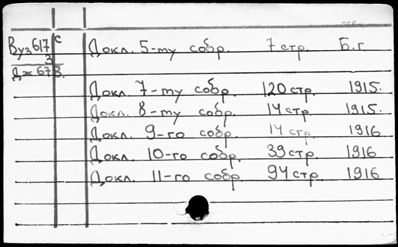 Вуз617 с Докл. 5-ту собр. 7 стр. Б.г.
3
Дж673. 
Докл. 7-ту собр. 120 стр. 1915.
Докл. 8-ту собр. 14 стр. 1915.
Докл. 9-го собр. 14 стр. 1916
Докл. 10-го собр. 39 стр. 1916
Докл. 11-го собр. 94 стр. 1916